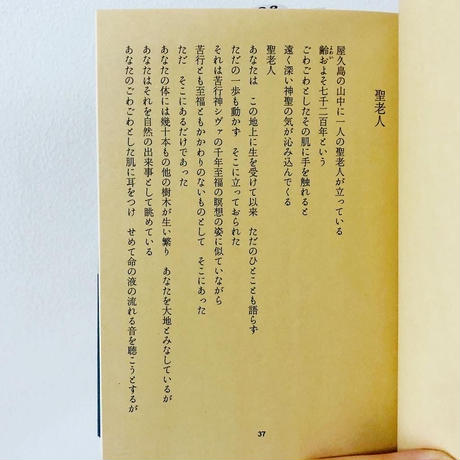 聖老人
屋久島の山中に一人の聖老人が立っている
齢およそ七千二百年という
よわい
ごわごわとしたその肌に手を触れると
遠く深い神聖の気が沁み込んでくる
聖老人
あなたは　この地上に生を受けて以来　ただのひとことも語らず
ただの一歩も動かず　そこに立っておられた
それは苦行神シヴァの千年至福の瞑想の姿に似ていながら
苦行とも至福ともかかわりのないものとして　そこにあった
ただ　そこにあるだけであった
あなたの体には幾十本もの他の樹木が生い繁り　あなたを大地とみなしているが
あなたはそれを自然の出来事として眺めている
あなたのごわごわとした肌に耳をつけ　せめて命の液の流れる音を聴こうとするが
37